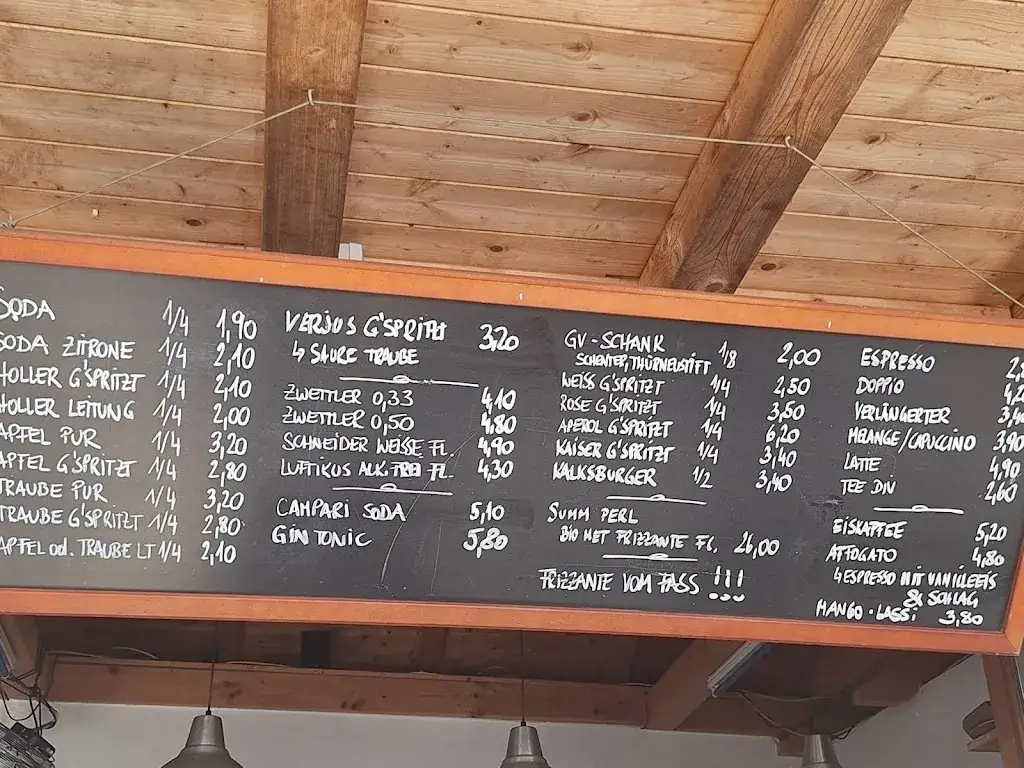 SODA 1/4 1,90
SODA ZITRONE 1/4 2,10
HOLLER G'SPRITZT 1/4 2,10
HOLLER LEITUNG 1/4 2,00
APFEL PUR 1/4 3,20
APFEL G'SPRITZT 1/4 2,80
TRAUBE PUR 1/4 3,20
TRAUBE G'SPRITZT 1/4 2,80
APFEL od. TRAUBE LT 1/4 2,10
VERJUS G'SPRITZT 3,20
↳ SAURE TRAUBE
ZWETTLER 0,33 4,10
ZWETTLER 0,50 4,80
SCHNEIDER WEISSE FL. 4,90
LUFTIKUS ALK.FREI FL. 4,30
CAMPARI SODA 5,10
GIN TONIC 5,80
GV-SCHANK 1/8 2,00
WEISS G'SPRITZT 1/4 2,50
ROSE G'SPRITZT 1/4 3,50
APEROL G'SPRITZT 1/4 6,20
KAISER G'SPRITZT 1/4 3,40
KALKSBURGER 1/2 3,40
SUMM PERL
BIO MET FRIZZANTE FL. 26,00
FRIZZANTE VOM FASS !!!
ESPRESSO
DOPPIO
VERLÄNGERTER
MELANGE/CAPUCCINO 3,90
LATTE 4,90
TEE DIV 2,60
EISKAFFEE 5,20
AFFOGATO 4,80
↳ ESPRESSO MIT VANILLEEIS
& SCHLAG
MANGO-LASSI 3,80